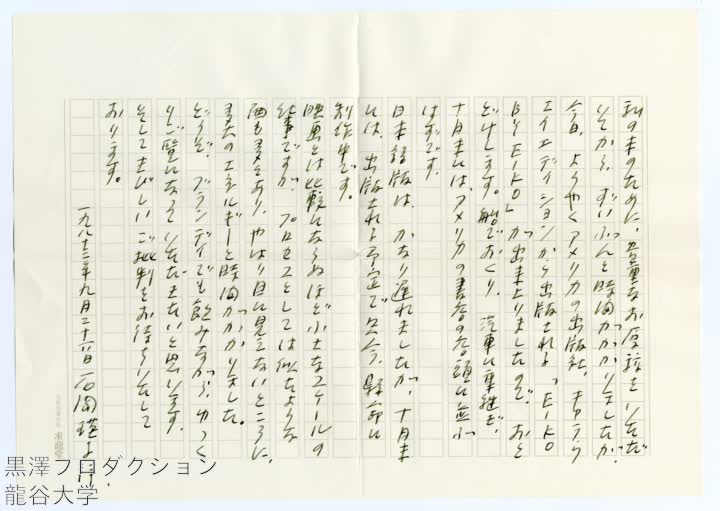 私の本のために、貴重なお原稿をいただ
いてから、ずいぶんと時間がかかりましたが、
今日、ようやくアメリカの出版社、キャラウ
エイエディションから出版される「EIKO
BY EIKO」が出来上りましたので、お
とどけします。船でおくり、汽車に乗継ぎ、
十月末には、アメリカの書店の店頭に並ぶ
はずです。
日本語版は、かなり遅れましたが、十月末
には、出版される予定で只今、懸命に
制作中です。
映画とは比較にならぬほど小さなスケールの
仕事ですが、プロセスとしては似たような
面も多々あり、やはり目に見えないところに、
多大のエネルギーと時間がかかりました。
どうぞ、ブランディでも飲みながら、ゆっく
りご覧になっていただきたいと思います。
そしてきびしいご批判をお待ちいたして
おります。
一九八三年九月二十六日 石岡瑛子
黒澤プロダクション
龍谷大学